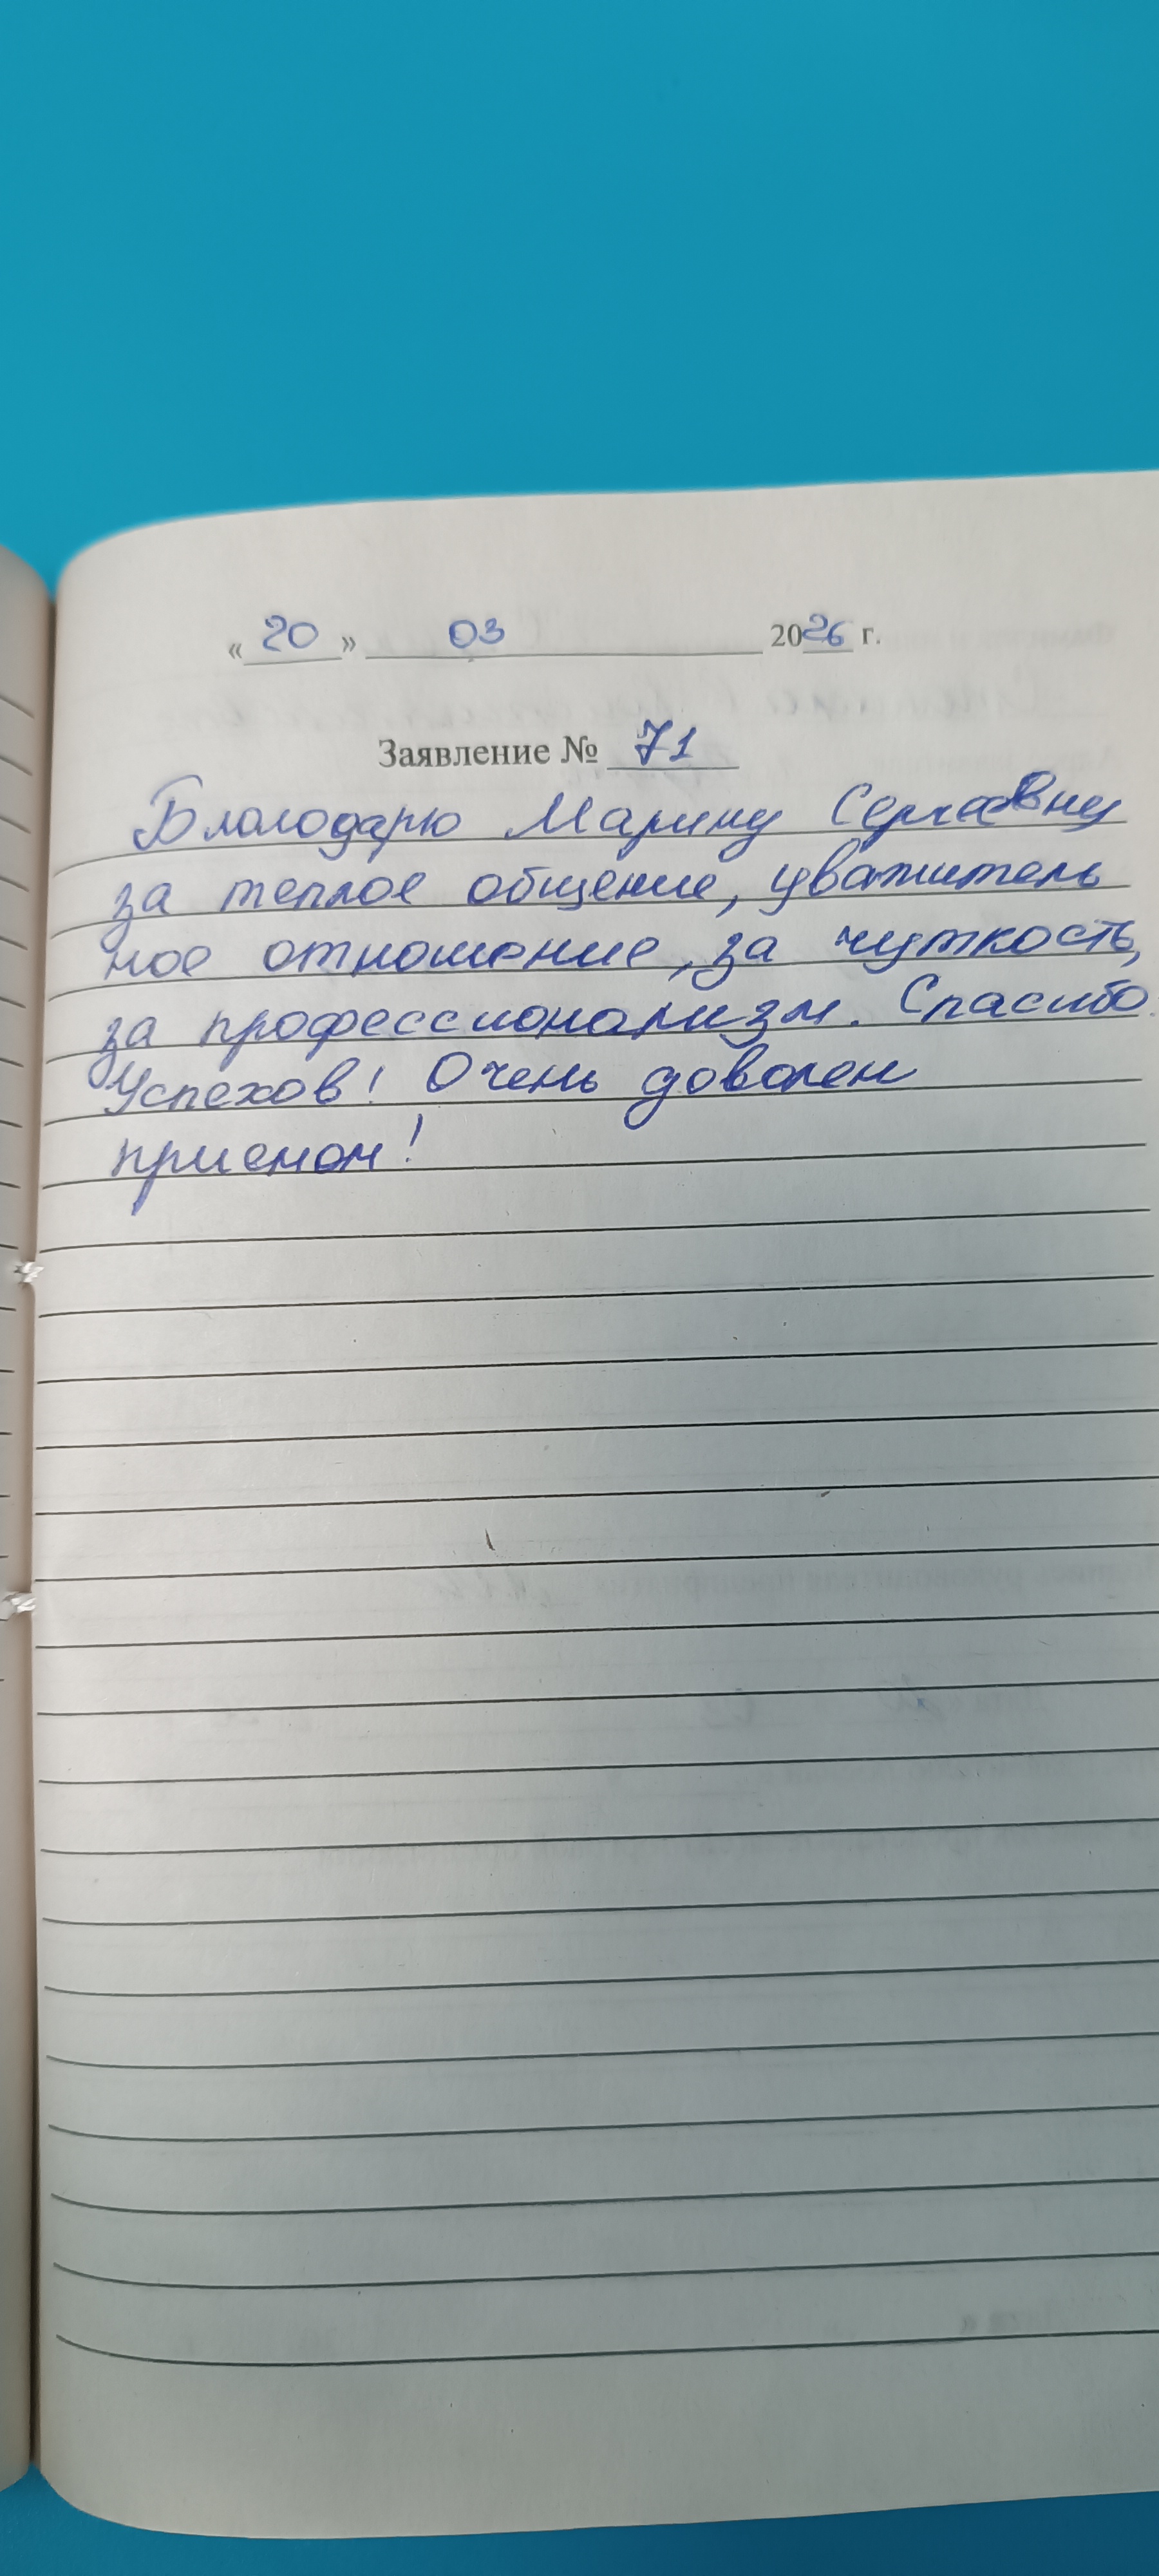 « 20 » 03 2026 г.
Заявление № 71
Благодарю Марину Сергеевну
за теплое общение, уважитель
ное отношение, за чуткость,
за профессионализм. Спасибо.
Успехов! Очень доволен
приемом!